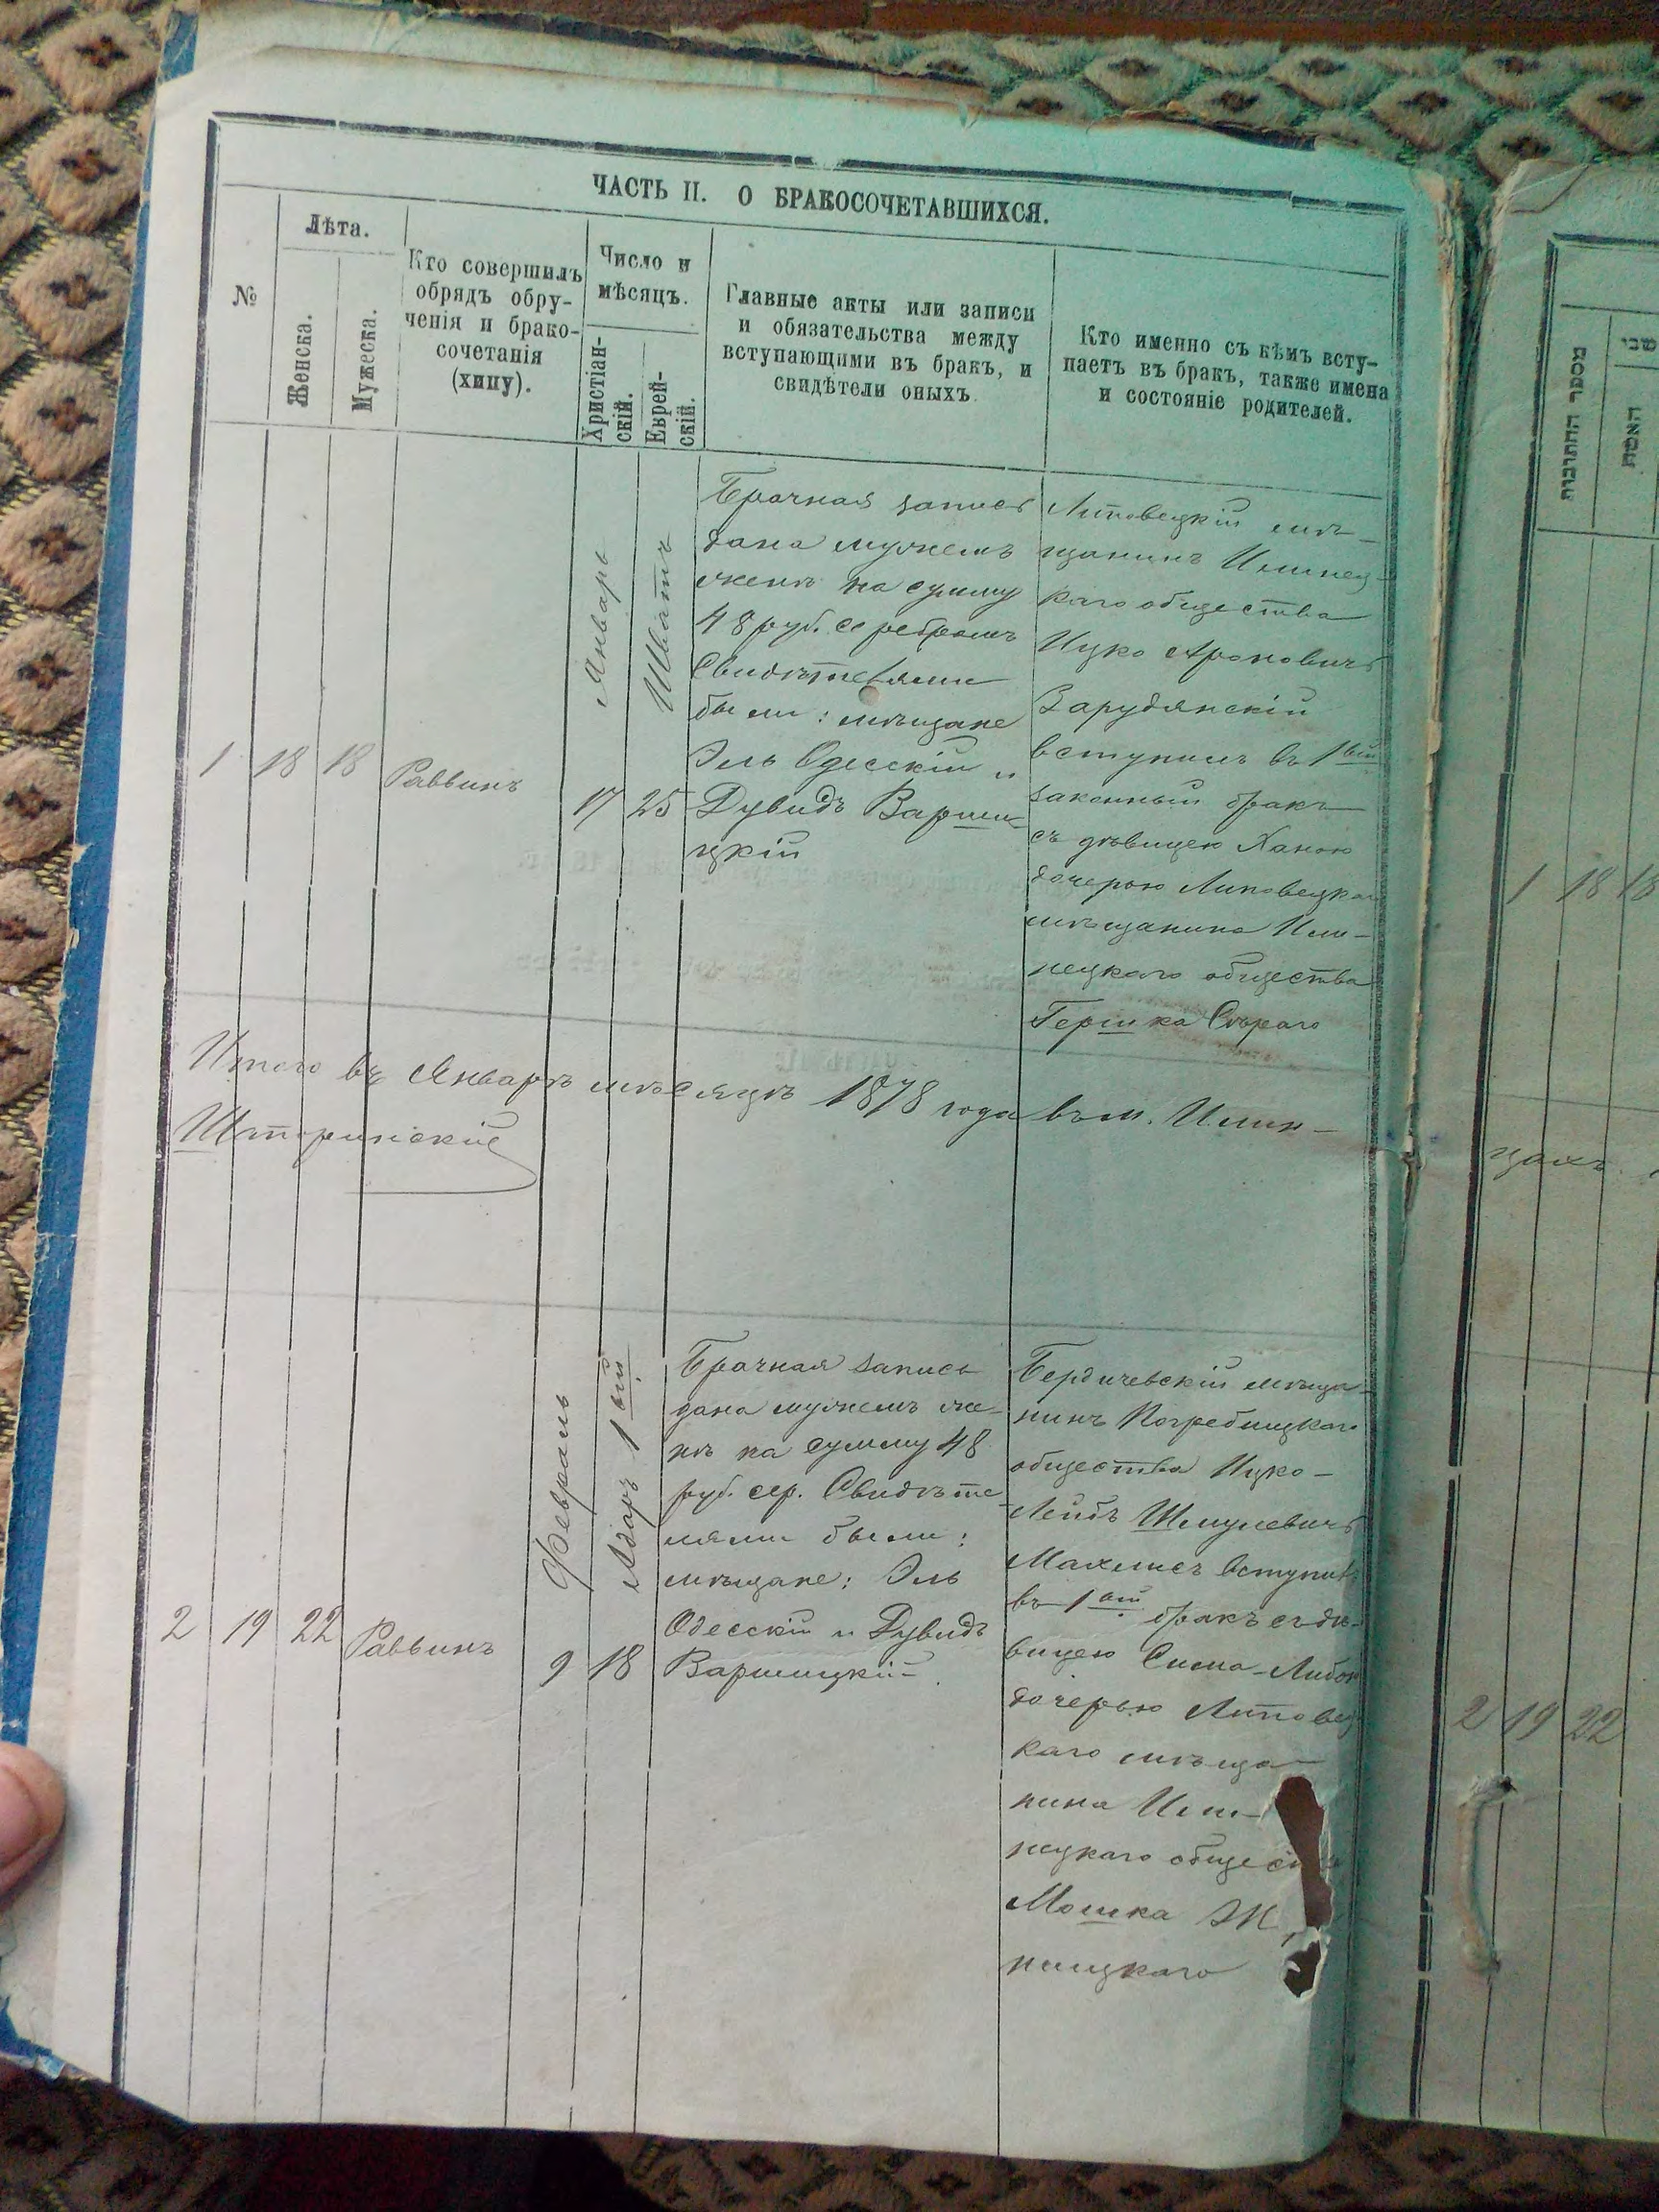 ЧАСТЬ II. О БРАКОСОЧЕТАВШИХСЯ.
№
Лѣта.
Женска.
Мужеска.
Кто совершилъ
обрядъ обру-
ченія и брако-
сочетанія
(хипу).
Число и
мѣсяцъ.
Христіан-
скій.
Еврей-
скій.
Главные акты или записи
и обязательства между
вступающими въ бракъ, и
свидѣтели оныхъ.
Кто именно съ кѣмъ всту-
паетъ въ бракъ, также имена
и состояніе родителей.
1
18
18
Раввинъ
Январь
17
Шватъ
25
Брачная запись
дана мужемъ
женѣ на сумму
48 руб. серебромъ
Свидѣтелями
были: мѣщане
Эль Одесскій и
Дувидъ Варши-
цкій
Липовецкій мѣ-
щанинъ Илинец-
каго общества
Ицко Ароновичъ
Зарудянскій
вступилъ въ 1вый
законный бракъ
съ дѣвицею Ханою
дочерью Липовецкаго
мѣщанина Или-
нецкаго общества
Гершка Сѣраго
Итого въ Январѣ мѣсяцѣ 1878 года въ м. Илин-
2
19
22
Раввинъ
Февраль
9
Адаръ 1ый
18
Брачная запись
дана мужемъ же-
нѣ на сумму 48
руб. сер. Свидѣте-
лями были:
мѣщане: Эль
Одесскій и Дувидъ
Варшицкій
Бердичевскій мѣща-
нинъ Погребищкаго
общества Ицко-
Лейбъ Шмулевичъ
Махлисъ вступилъ
въ 1ый бракъ съ дѣ-
вицею Сима-Либою
дочерью Липовец-
каго мѣща-
нина Или-
нецкаго общес
Мошка
ницкаго
מספר החתונות
שני
האשה
1
18
18
цахъ
2
19
22